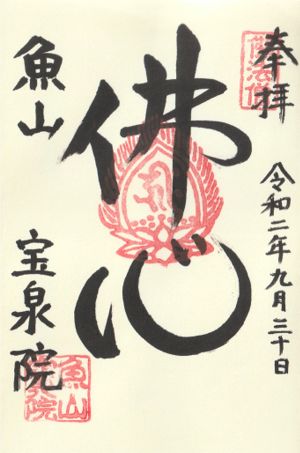 奉拝
佛法僧
令和二年九月三十日
佛心
魚山
宝泉院
魚山
院